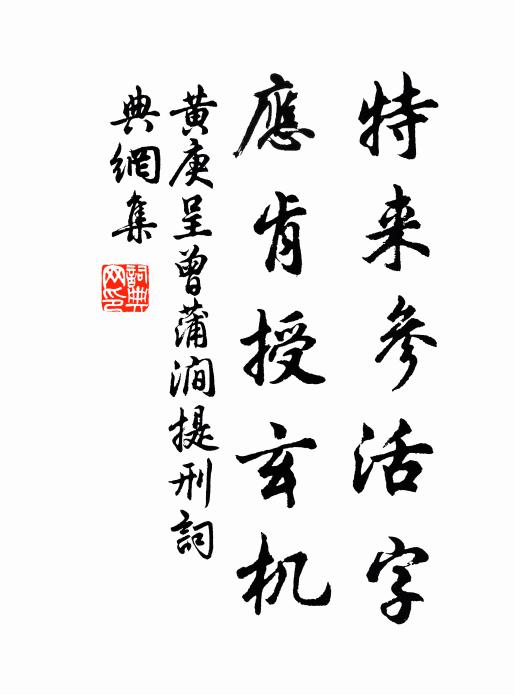 特来参活字
應肯授玄机
黄庚呈曾蒲澗提刑詞
典網集
詞典网印